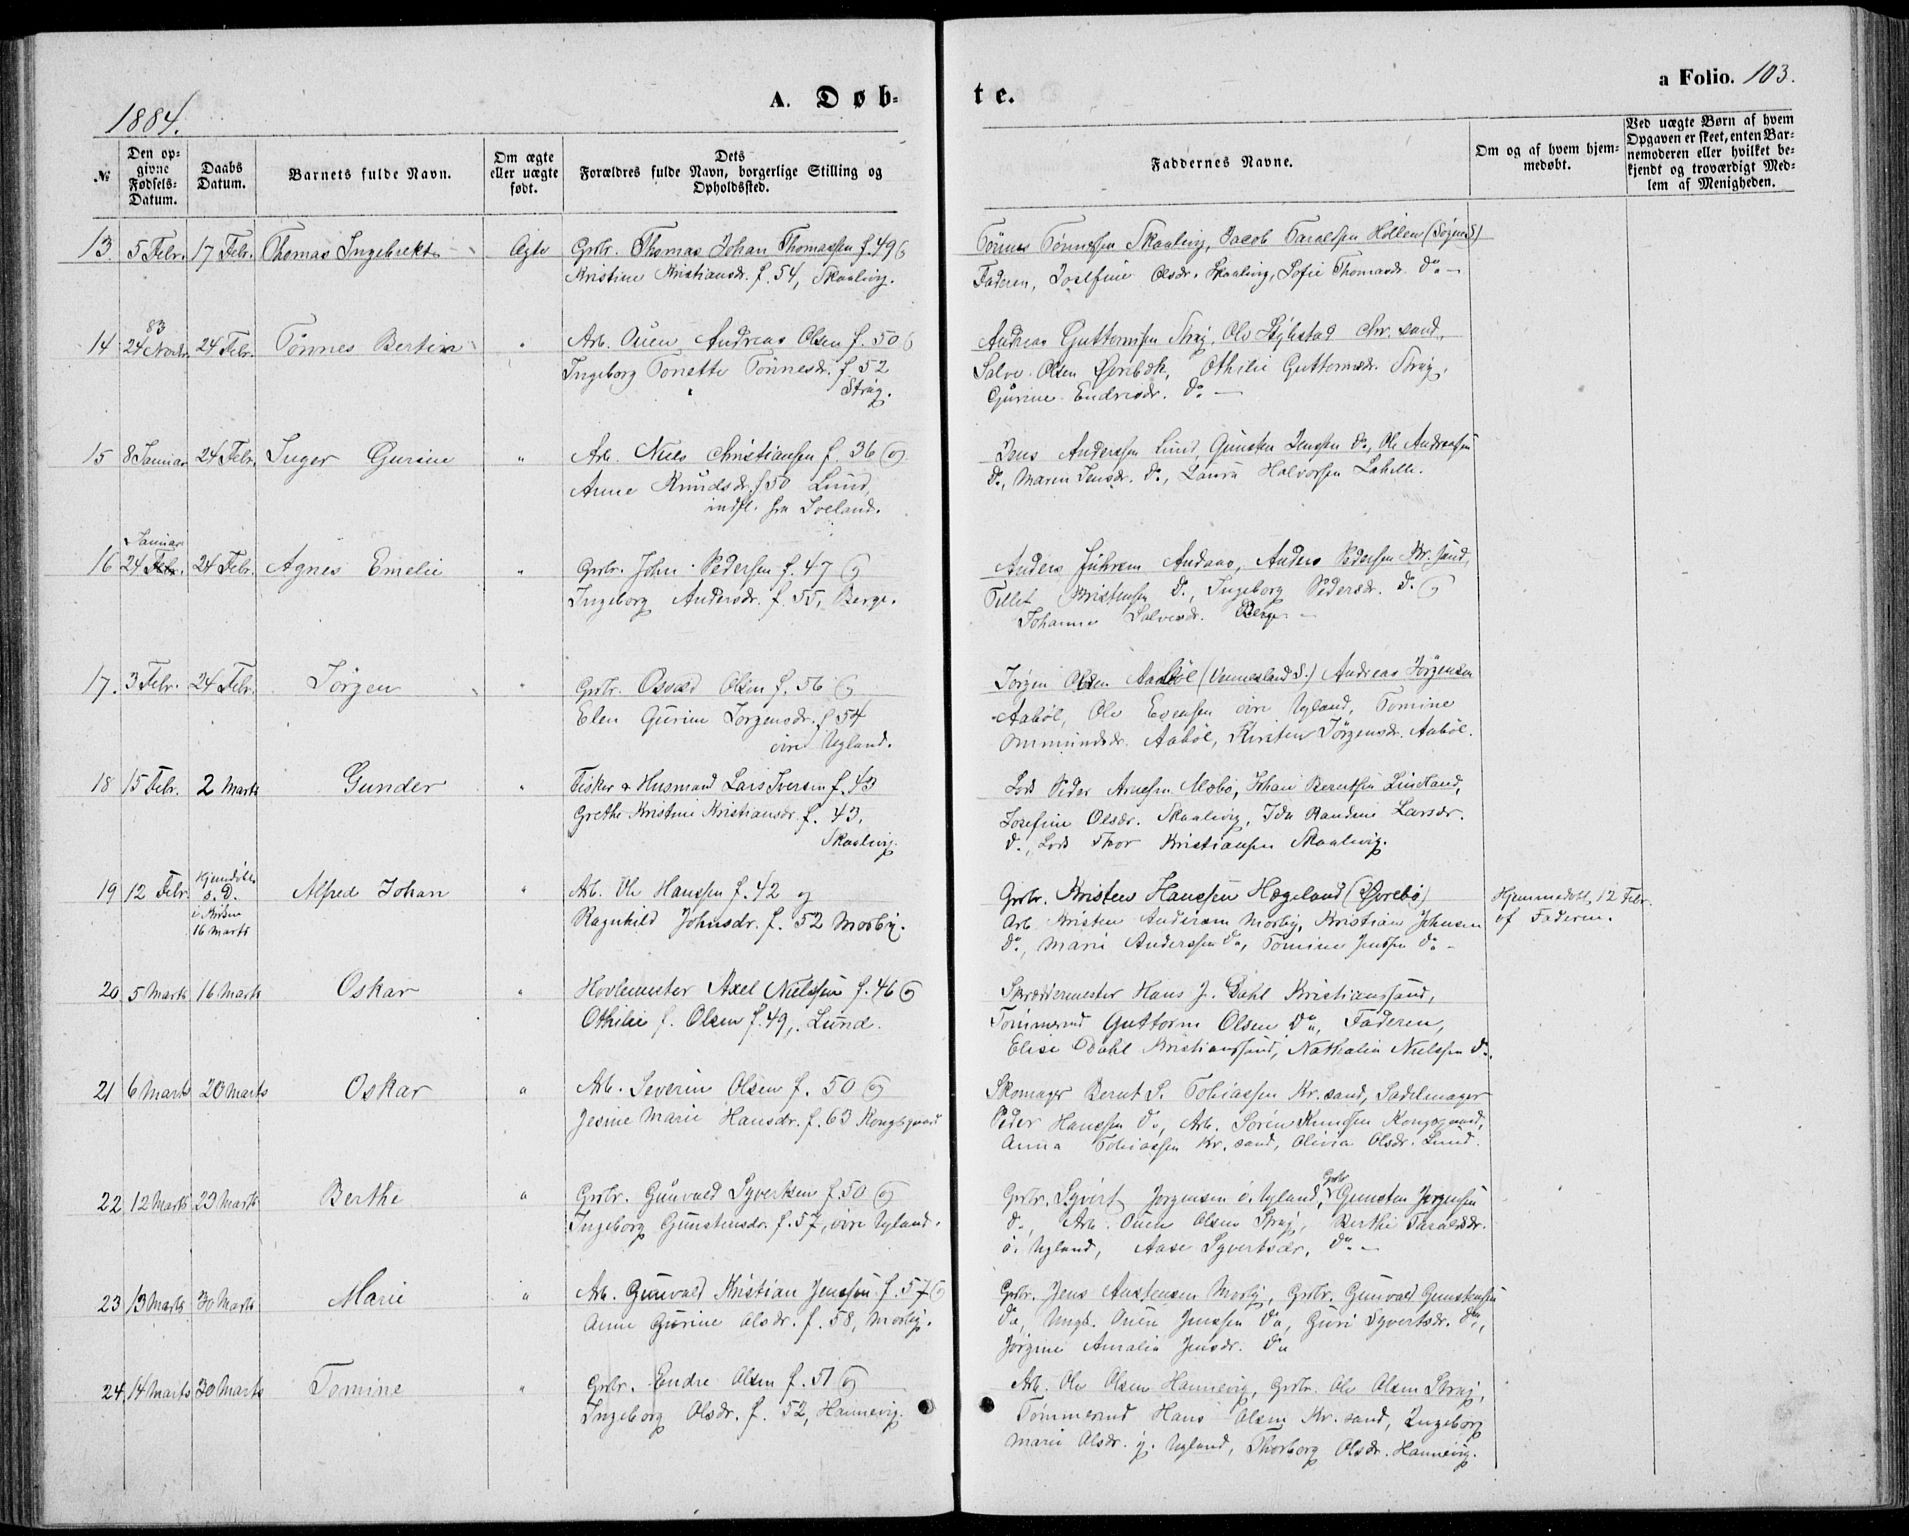 1884.
A. Døb-
te.
a Folio. 103.
№
Den op-
givne
Fødsels-
Datum.
Daabs
Datum.
Barnets fulde Navn.
Om ægte
eller uægte
født.
Dets
Forældres fulde Navn, borgerlige Stilling og
Opholdssted.
Faddernes Navne.
Om og af hvem hjem-
medøbt.
Ved uægte Børn af hvem
Opgaven er skeet, enten Bar-
nemoderen eller hvilket be-
kjendt og troværdigt Med-
lem af Menigheden.
13 5 Febr. 17 Febr. Thomas Ingebrekt Ægte Grbr. Thomas Johan Thomassen f. 49 og
Kristine Kristiansdr. f. 54, Skaalevig.
Tönnes Tönnessen Skaalevig, Jacob Taraldsen Höllen (Søgne S)
Faderen, Josefine Olsdr. Skaalevig, Sofie Thomasdr. Do
14 24 Novbr. 83 24 Febr. Tönnes Bertin " Arb. Ouen Andreas Olsen f. 50 og
Ingeborg Tonette Tönnesdr. f. 52
Stray.
Andreas Guttormsen Stray, Ole Chr. sand,
Salve Olsen Øvrebæk, Othilie Guttormsdr. Stray,
Gurine Endresdr. Do
15 8 Januar 24 Febr. Inger Gurine " Arb. Niels Christiansen f. 36 og
Anne Knudsdr. f 50 Lund,
indfl. fra Iveland.
Jens Anderssen Lund, Gunsten Jenssen Do, Ole Andreassen
Do, Maren Jensdr. Do, Laura Halvorsen Lahelle.
16 24 Febr. Januar 24 Febr. Agnes Emelie " Grbr. John Pedersen f. 47 og
Ingeborg Andersdr. f. 55, Berge.
Anders Andaas, Anders Pedersen Kr. sand,
Tellef Kristensen Do, Ingeborg Pedersdr. Do og
Johanne Salvesdr. Berge
17. 3 Febr. 24 Febr. Jörgen " Grbr. Osvald Olsen f. 56 og
Elen Gurine Jörgensdr. f 54
övre Ugland.
Jörgen Olsen Aaböl (Vennesland S.) Andreas Jörgensen
Aaböl, Ole Evensen övre Ugland, Tomine
Ommundsdr. Aaböl, Kirsten Jörgensdr. Aaböl.
18 15 Febr. 2 Marts Gunder " Fisker & Husmand Lars Iversen f. 43
Grethe Kristine Kristiansdr. f. 43,
Skaalevig.
Lods Peder Arnesen Mæbø, Johan Berntsen Lindland,
Josefine Olsdr. Skaalevig, Ida Randine Larsdr.
Do, Lods Thor Kristiansen Skaalevig.
19 12 Febr. Hjemdöbt
s. D.
i Kirken
16 Marts
Alfred Johan " Arb. Ole Hanssen f. 42 og
Ragnhild Johnsdr. f. 52 Mosby.
Grbr. Kristen Hanssen Hægeland (Øvrebø)
Arb. Kristen Andersen Mosby, Kristian Johnsen
Do, Marie Anderssen Do, Tomine Jenssen Do
Hjemmedöbt 12 Febr.
af Faderen.
20 5 Marts 16 Marts Oskar " Hovlemester Axel Nielssen f. 46 og
Othilie f. Olsen f. 49, Lund.
Skræddermester Hans J. Dahl Kristianssand,
Tömmermd Guttorm Olsen Do, Faderen,
Elise Dahl Kristianssand, Nathalia Nielssen Do.
21 6 Marts 20 Marts Oskar " Arb. Severin Olsen f. 50 og
Jesine Marie Hansdr. f. 63 Kongsgaard
Skomager Bernt S. Tobiassen Kr. sand, Sadelmager
Peder Hanssen Do, Arb. Sören Knudsen Kongsgaard,
Anna Tobiassen Kr. sand, Olivia Olsdr. Lund.
22 12 Marts 23 Marts Berthe " Grbr. Gunvald Syvertsen f. 50 og
Ingeborg Gunstensdr. f. 57, övre Ugland.
Grbr. Syvert Jørgensen ö. Ugland, Grbr Gunsten Jørgensen
Do, Arb. Ouen Olsen Stray, Berthe Taraldsdr.
ö. Ugland, Aase Syvertsdr. Do
23 13 Marts 30 Marts Marie " Arb. Gunvald Kristian Jenssen f. 57 og
Anne Gurine Olsdr. f. 58, Mosby.
Grbr. Jens Austensen Mosby, Grbr. Gunvald Gunstensen
Do, Ungk. Ouen Jenssen Do, Guri Syvertsdr. Do,
Jörgine Amalia Jensdr. Do
24. 14 Marts 30 Marts Tomine " Grbr. Endre Olsen f. 51 og
Ingeborg Olsdr. f. 52, Hannevig.
Arb. Ole Olsen Hannevig, Grbr. Ole Olsen Stray,
Tömmermd Hans Olsen Kr. sand, Ingeborg
Marie Olsdr. y. Ugland, Thorborg Olsdr. Hannevig.